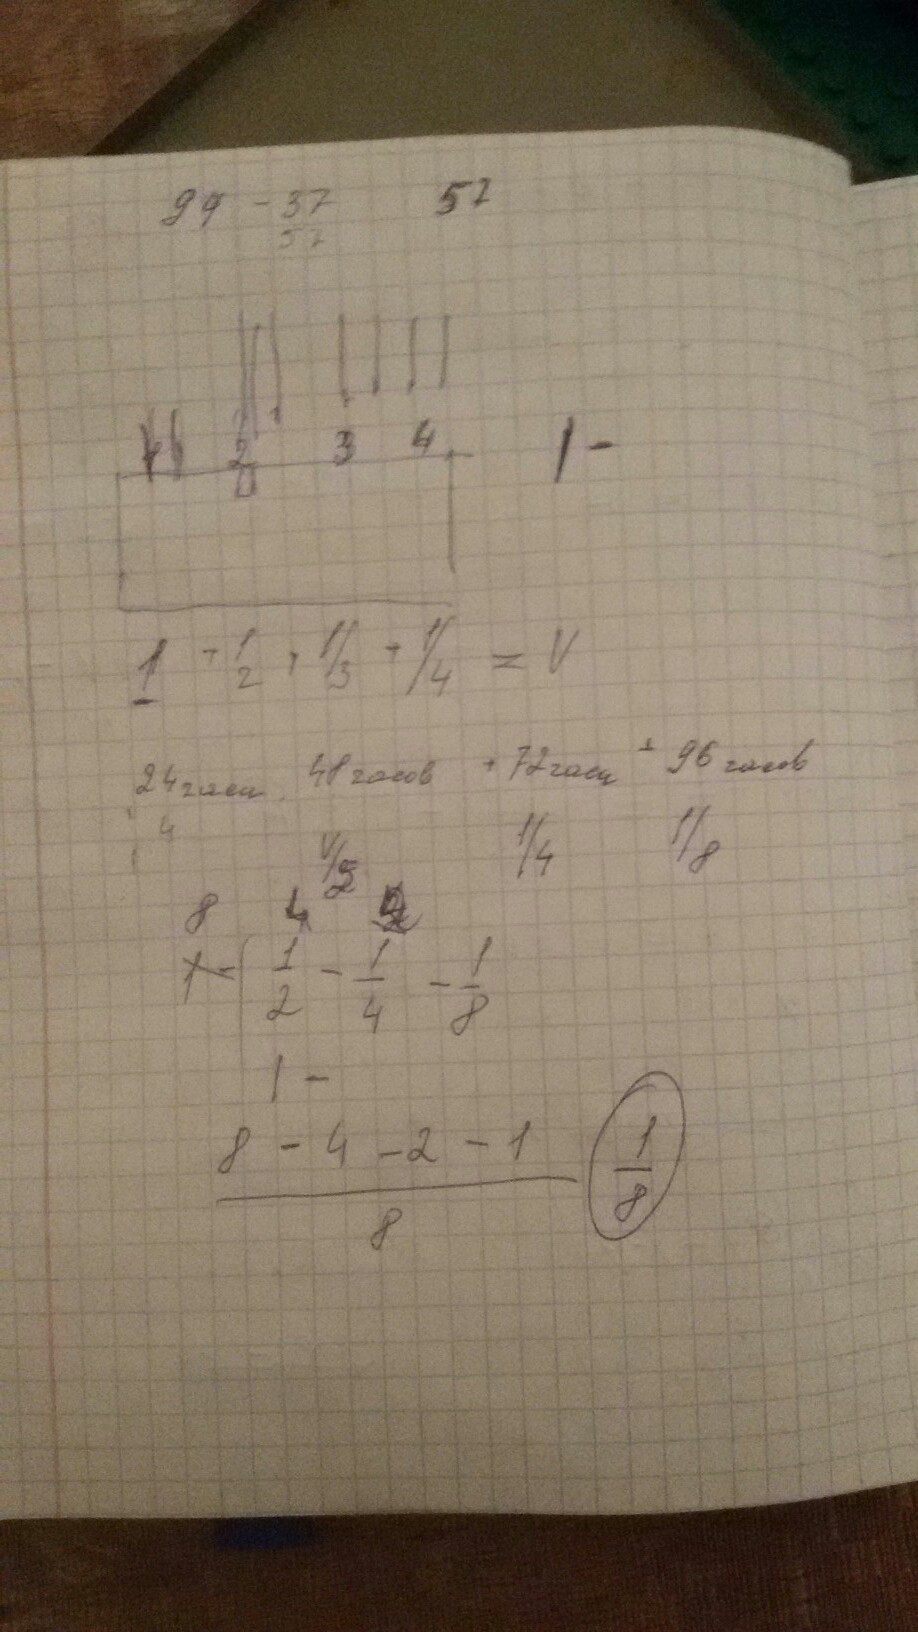 94 - 37 57
57
2 3 4 1 -
1 + 1/2 + 1/3 + 1/4 = V
24 часа 48 часов + 72 часа + 96 часов
4
1/2 1/4 1/8
8 4
1 - ( 1/2 - 1/4 - 1/8
1 -
8 - 4 - 2 - 1 1/8
8